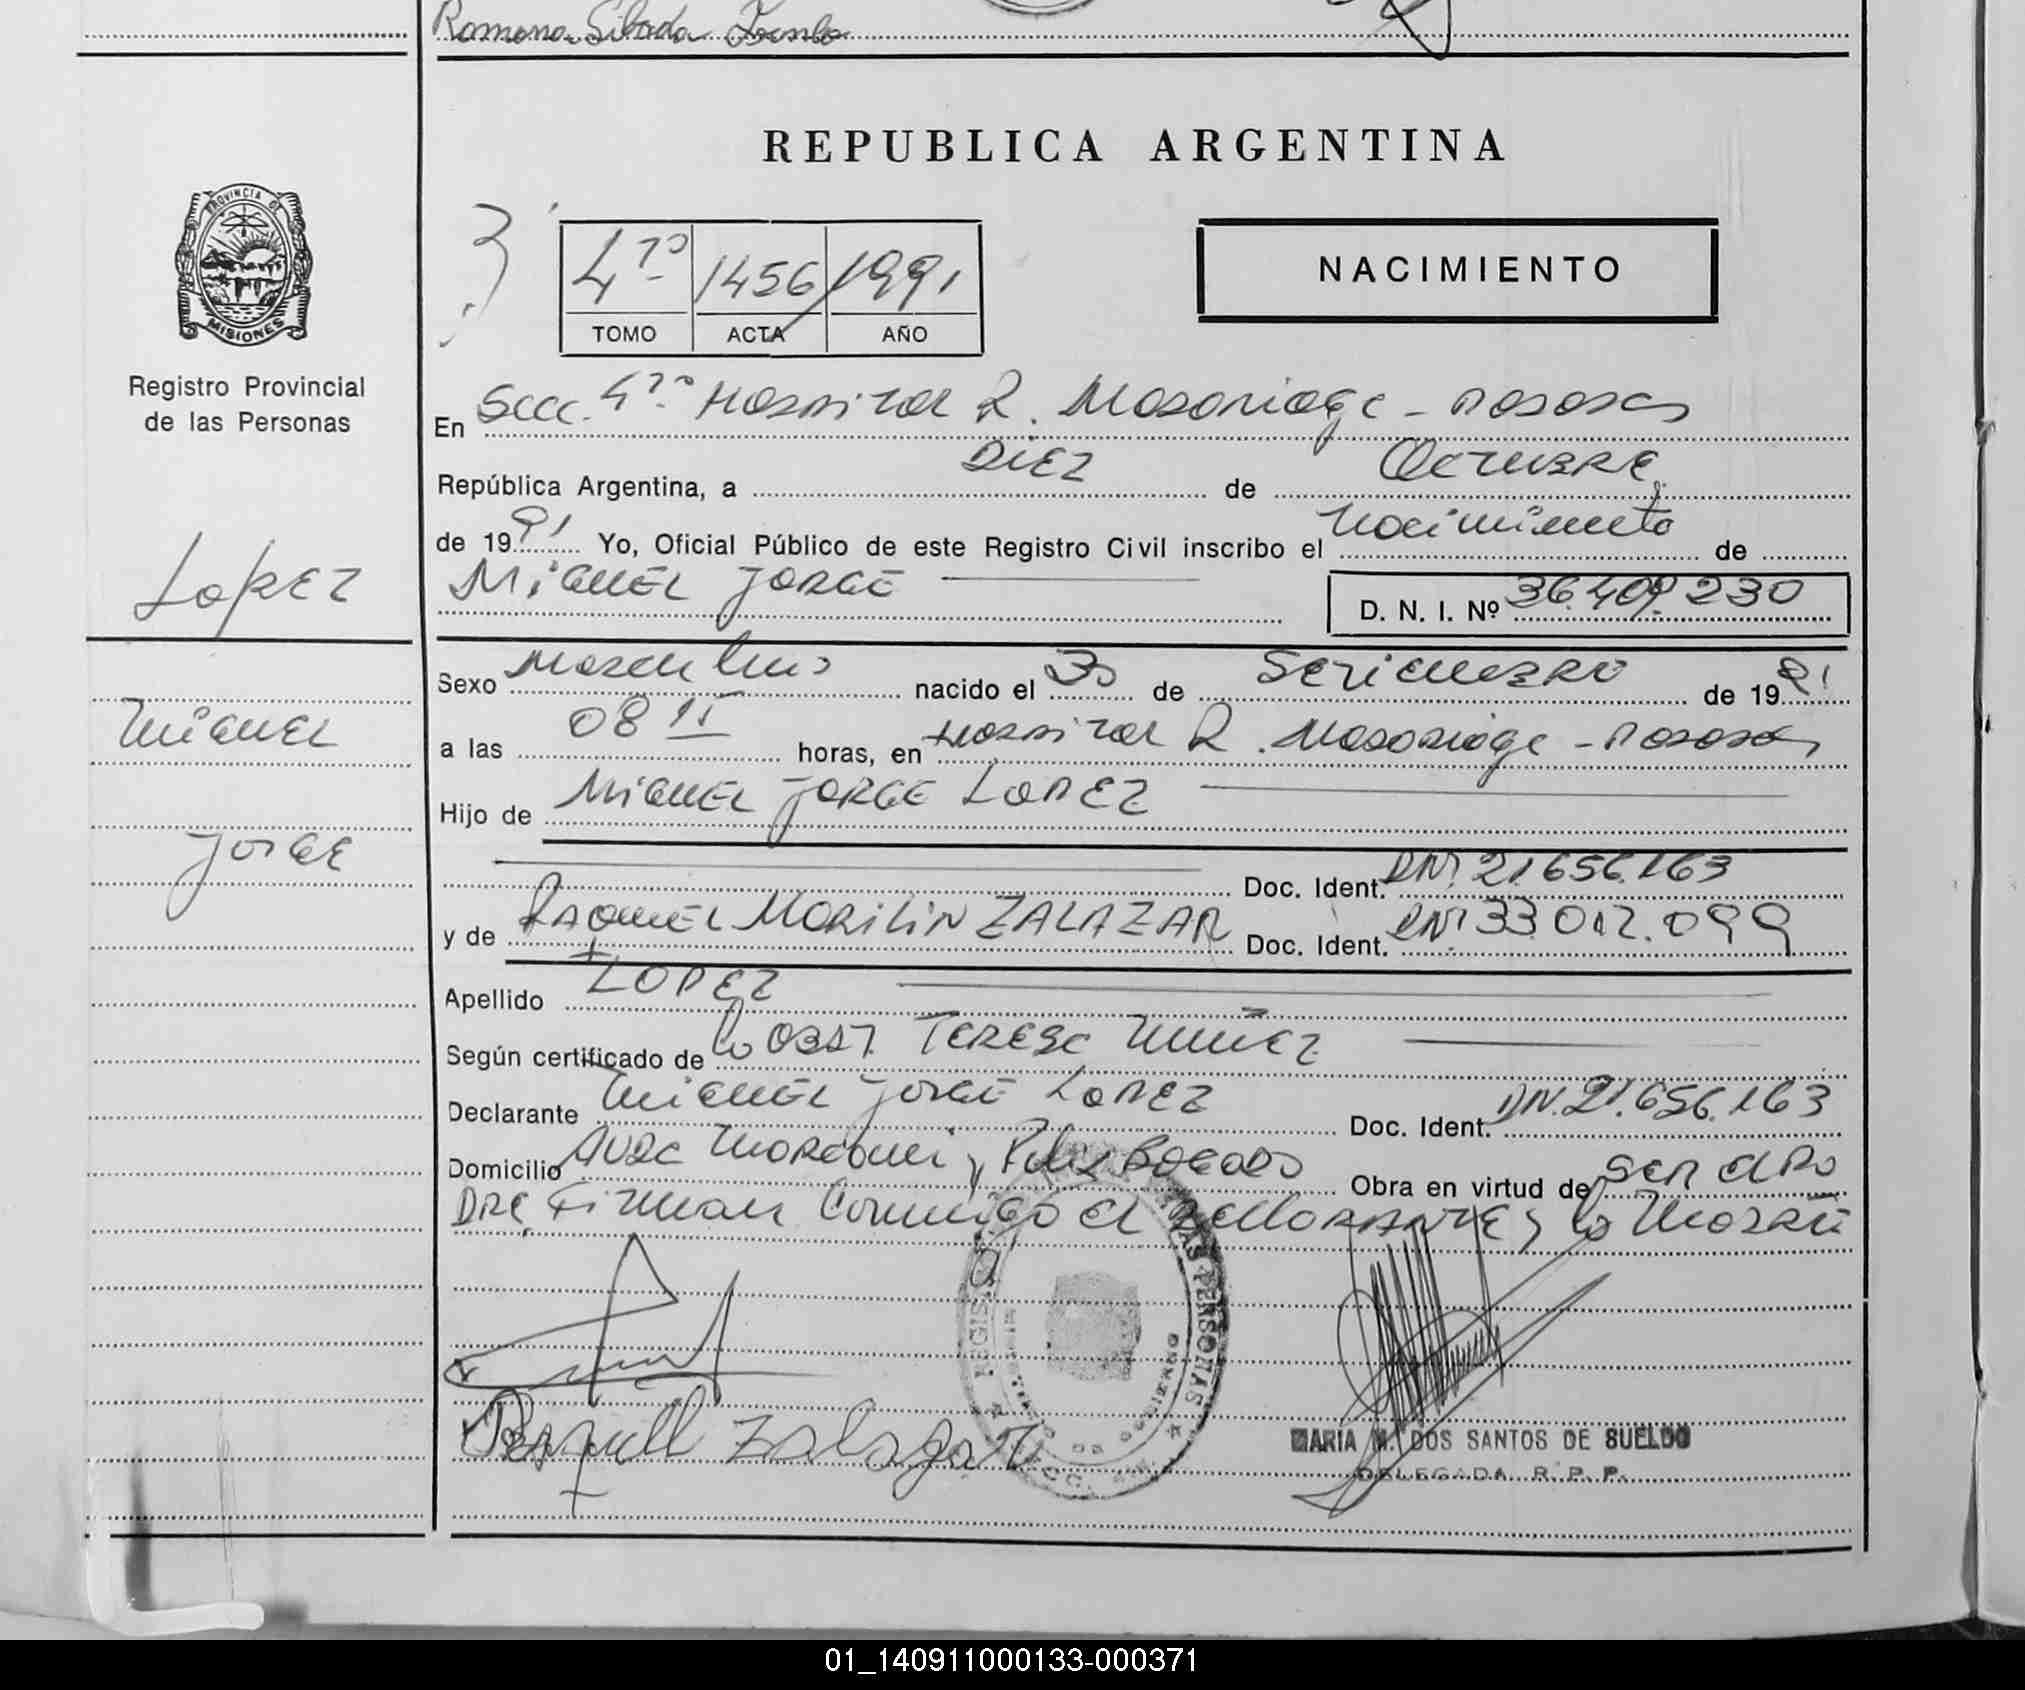 Ramona
REPUBLICA ARGENTINA
PROVINCIA DE
MISIONES
Registro Provincial
de las Personas
3
4to 1456 1991
TOMO ACTA AÑO
NACIMIENTO
En Secc. 4to Hospital R. Madariaga - Posadas
República Argentina, a DIEZ de OCTUBRE
de 1991 Yo, Oficial Público de este Registro Civil inscribo el Nacimiento de
MIGUEL JORGE D. N. I. Nº 36.409.230
LOPEZ
MIGUEL
JORGE
Sexo Masculino nacido el 30 de SETIEMBRE de 1991
a las 08 15 horas, en Hospital R. Madariaga - Posadas
Hijo de MIGUEL JORGE LOPEZ
Doc. Ident. DNI 21.656.163
y de RAQUEL MARILIN ZALAZAR Doc. Ident. DNI 33.012.099
Apellido LOPEZ
Según certificado de la OBST. TERESA NUÑEZ
Declarante MIGUEL JORGE LOPEZ Doc. Ident. DNI. 21.656.163
Domicilio AVDA y Obra en virtud de SER EL PA
DRE, Firman Conmigo el DECLARANTE y la MADRE
REGISTRO DE LAS PERSONAS
Zalazar
MARIA M. DOS SANTOS DE SUELDO
DELEGADA R. P. P.
01_140911000133-000371